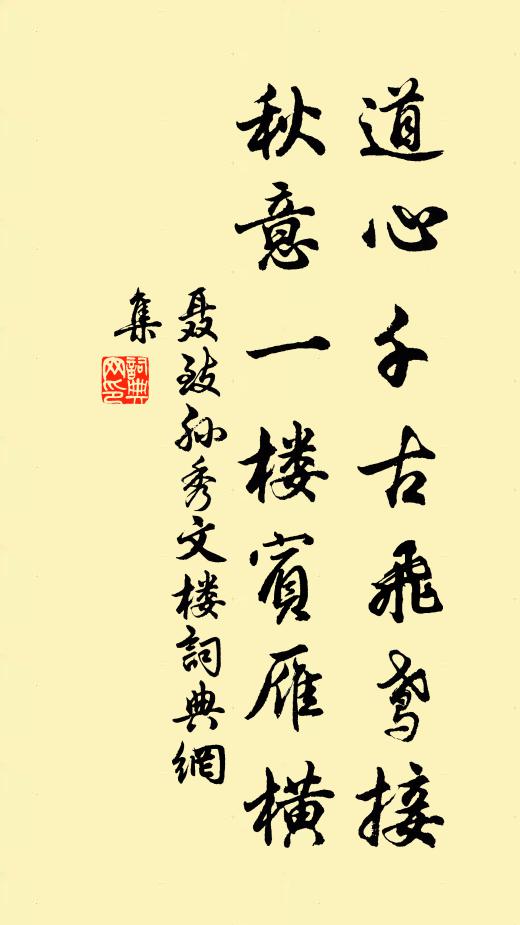 道心千古飛鸢接
秋意一楼賓雁橫
聂致孙秀文楼詞典網
集
詞典
网印